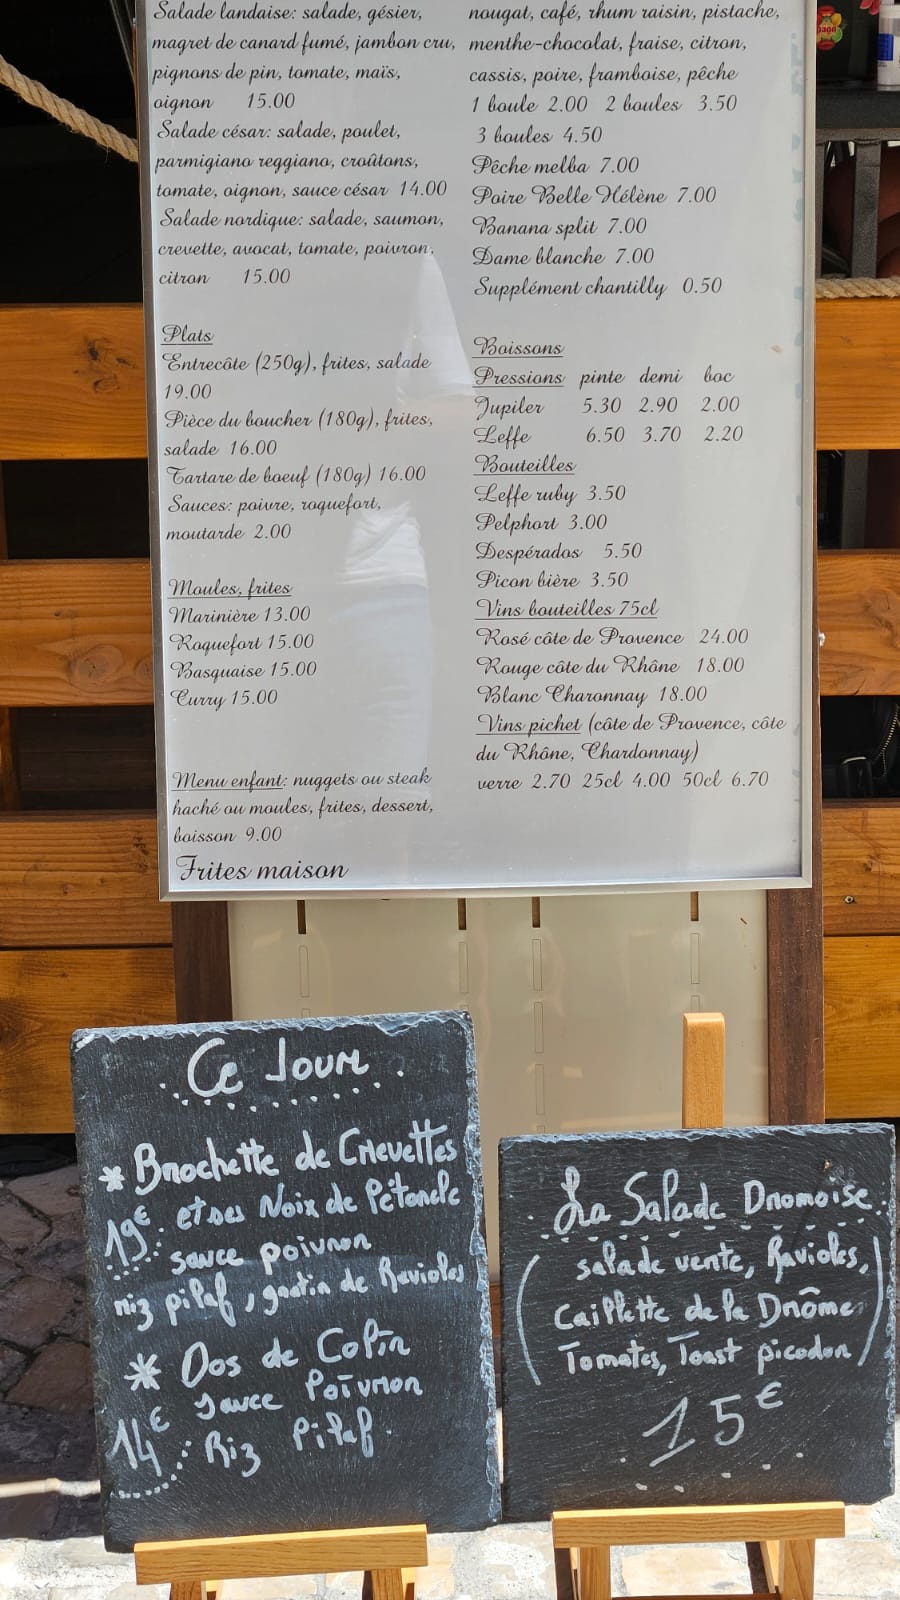 Salade landaise: salade, gésier,
magret de canard fumé, jambon cru,
pignons de pin, tomate, maïs,
oignon 15.00
Salade césar: salade, poulet,
parmigiano reggiano, croûtons,
tomate, oignon, sauce césar 14.00
Salade nordique: salade, saumon,
crevette, avocat, tomate, poivron,
citron 15.00
Plats
Entrecôte (250g), frites, salade
19.00
Pièce du boucher (180g), frites,
salade 16.00
Tartare de boeuf (180g) 16.00
Sauces: poivre, roquefort,
moutarde 2.00
Moules, frites
Marinière 13.00
Roquefort 15.00
Basquaise 15.00
Curry 15.00
Menu enfant: nuggets ou steak
haché ou moules, frites, dessert,
boisson 9.00
Frites maison
nougat, café, rhum raisin, pistache,
menthe-chocolat, fraise, citron,
cassis, poire, framboise, pêche
1 boule 2.00 2 boules 3.50
3 boules 4.50
Pêche melba 7.00
Poire Belle Hélène 7.00
Banana split 7.00
Dame blanche 7.00
Supplément chantilly 0.50
Boissons
Pressions pinte demi boc
Jupiler 5.30 2.90 2.00
Leffe 6.50 3.70 2.20
Bouteilles
Leffe ruby 3.50
Pelphort 3.00
Despérados 5.50
Picon bière 3.50
Vins bouteilles 75cl
Rosé côte de Provence 24.00
Rouge côte du Rhône 18.00
Blanc Charonnay 18.00
Vins pichet (côte de Provence, côte
du Rhône, Chardonnay)
verre 2.70 25cl 4.00 50cl 6.70
Ce Jour
* Brochette de Crevettes
et ses Noix de Pétoncle
19€
sauce poivron
riz pilaf, gratin de Ravioles
* Dos de Colin
sauce Poivron
14€ Riz Pilaf.
La Salade Dromoise
(salade verte, Ravioles,
Caillette de la Drôme
Tomates, Toast picodon)
15€